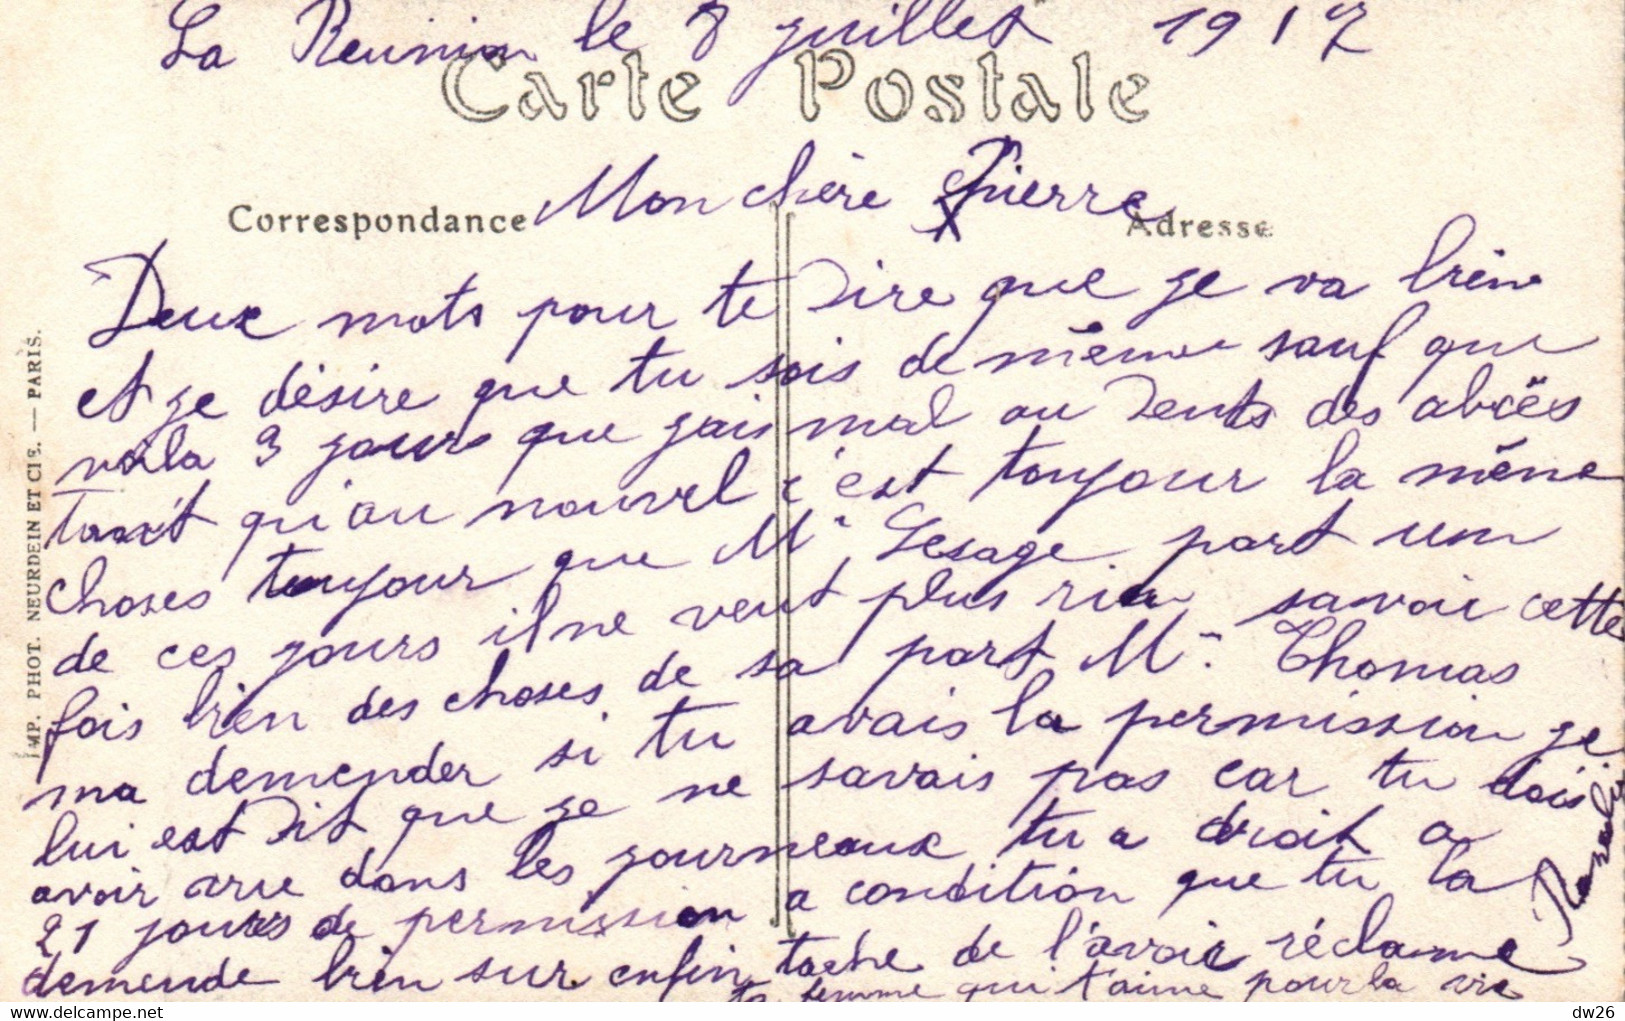 La Reunion le 8 juillet 1917
Carte Postale
Mon chère Pierre
Correspondance
Adresse
Deux mots pour te dire que je va bien
et je désire que tu sois de même sauf que
voila 3 jours que jais mal au dents des abcës
tant qu'au nouvel c'est toujour la même
choses toujour que Mr Lesage part un
de ces jours il ne veut plus rien savoir cette
fois bien des choses de sa part Mr Thomas
ma demender si tu avais la permission je
lui est dit que je ne savais pas car tu dois
avoir vue dans les journeaux tu a droit a
21 jours de permission a condition que tu la
demende bien sur enfin tache de l'avoir réclame
ta femme qui t'aime pour la vie
Rosalie
IMP. PHOT. NEURDEIN ET CIE. — PARIS.
dw26